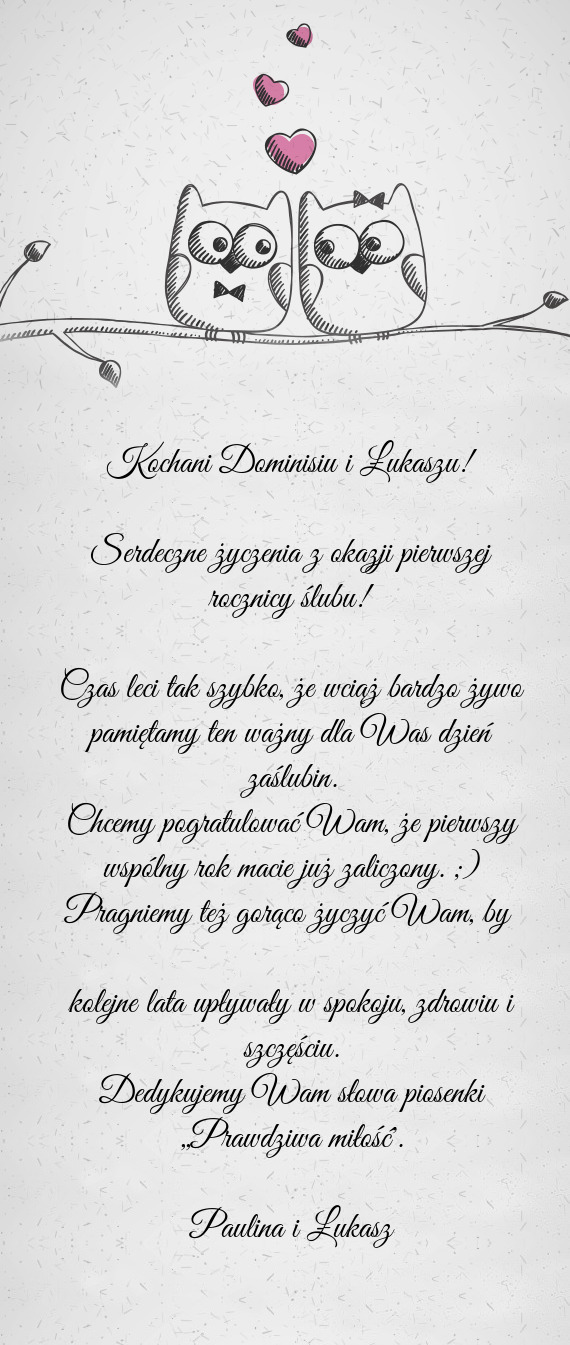 Kochani Dominisiu i Łukaszu!
Serdeczne życzenia z okazji pierwszej
rocznicy ślubu!
Czas leci tak szybko, że wciąż bardzo żywo
pamiętamy ten ważny dla Was dzień
zaślubin.
Chcemy pogratulować Wam, że pierwszy
wspólny rok macie już zaliczony. ;)
Pragniemy też gorąco życzyć Wam, by
kolejne lata upływały w spokoju, zdrowiu i
szczęściu.
Dedykujemy Wam słowa piosenki
„Prawdziwa miłość”.
Paulina i Łukasz